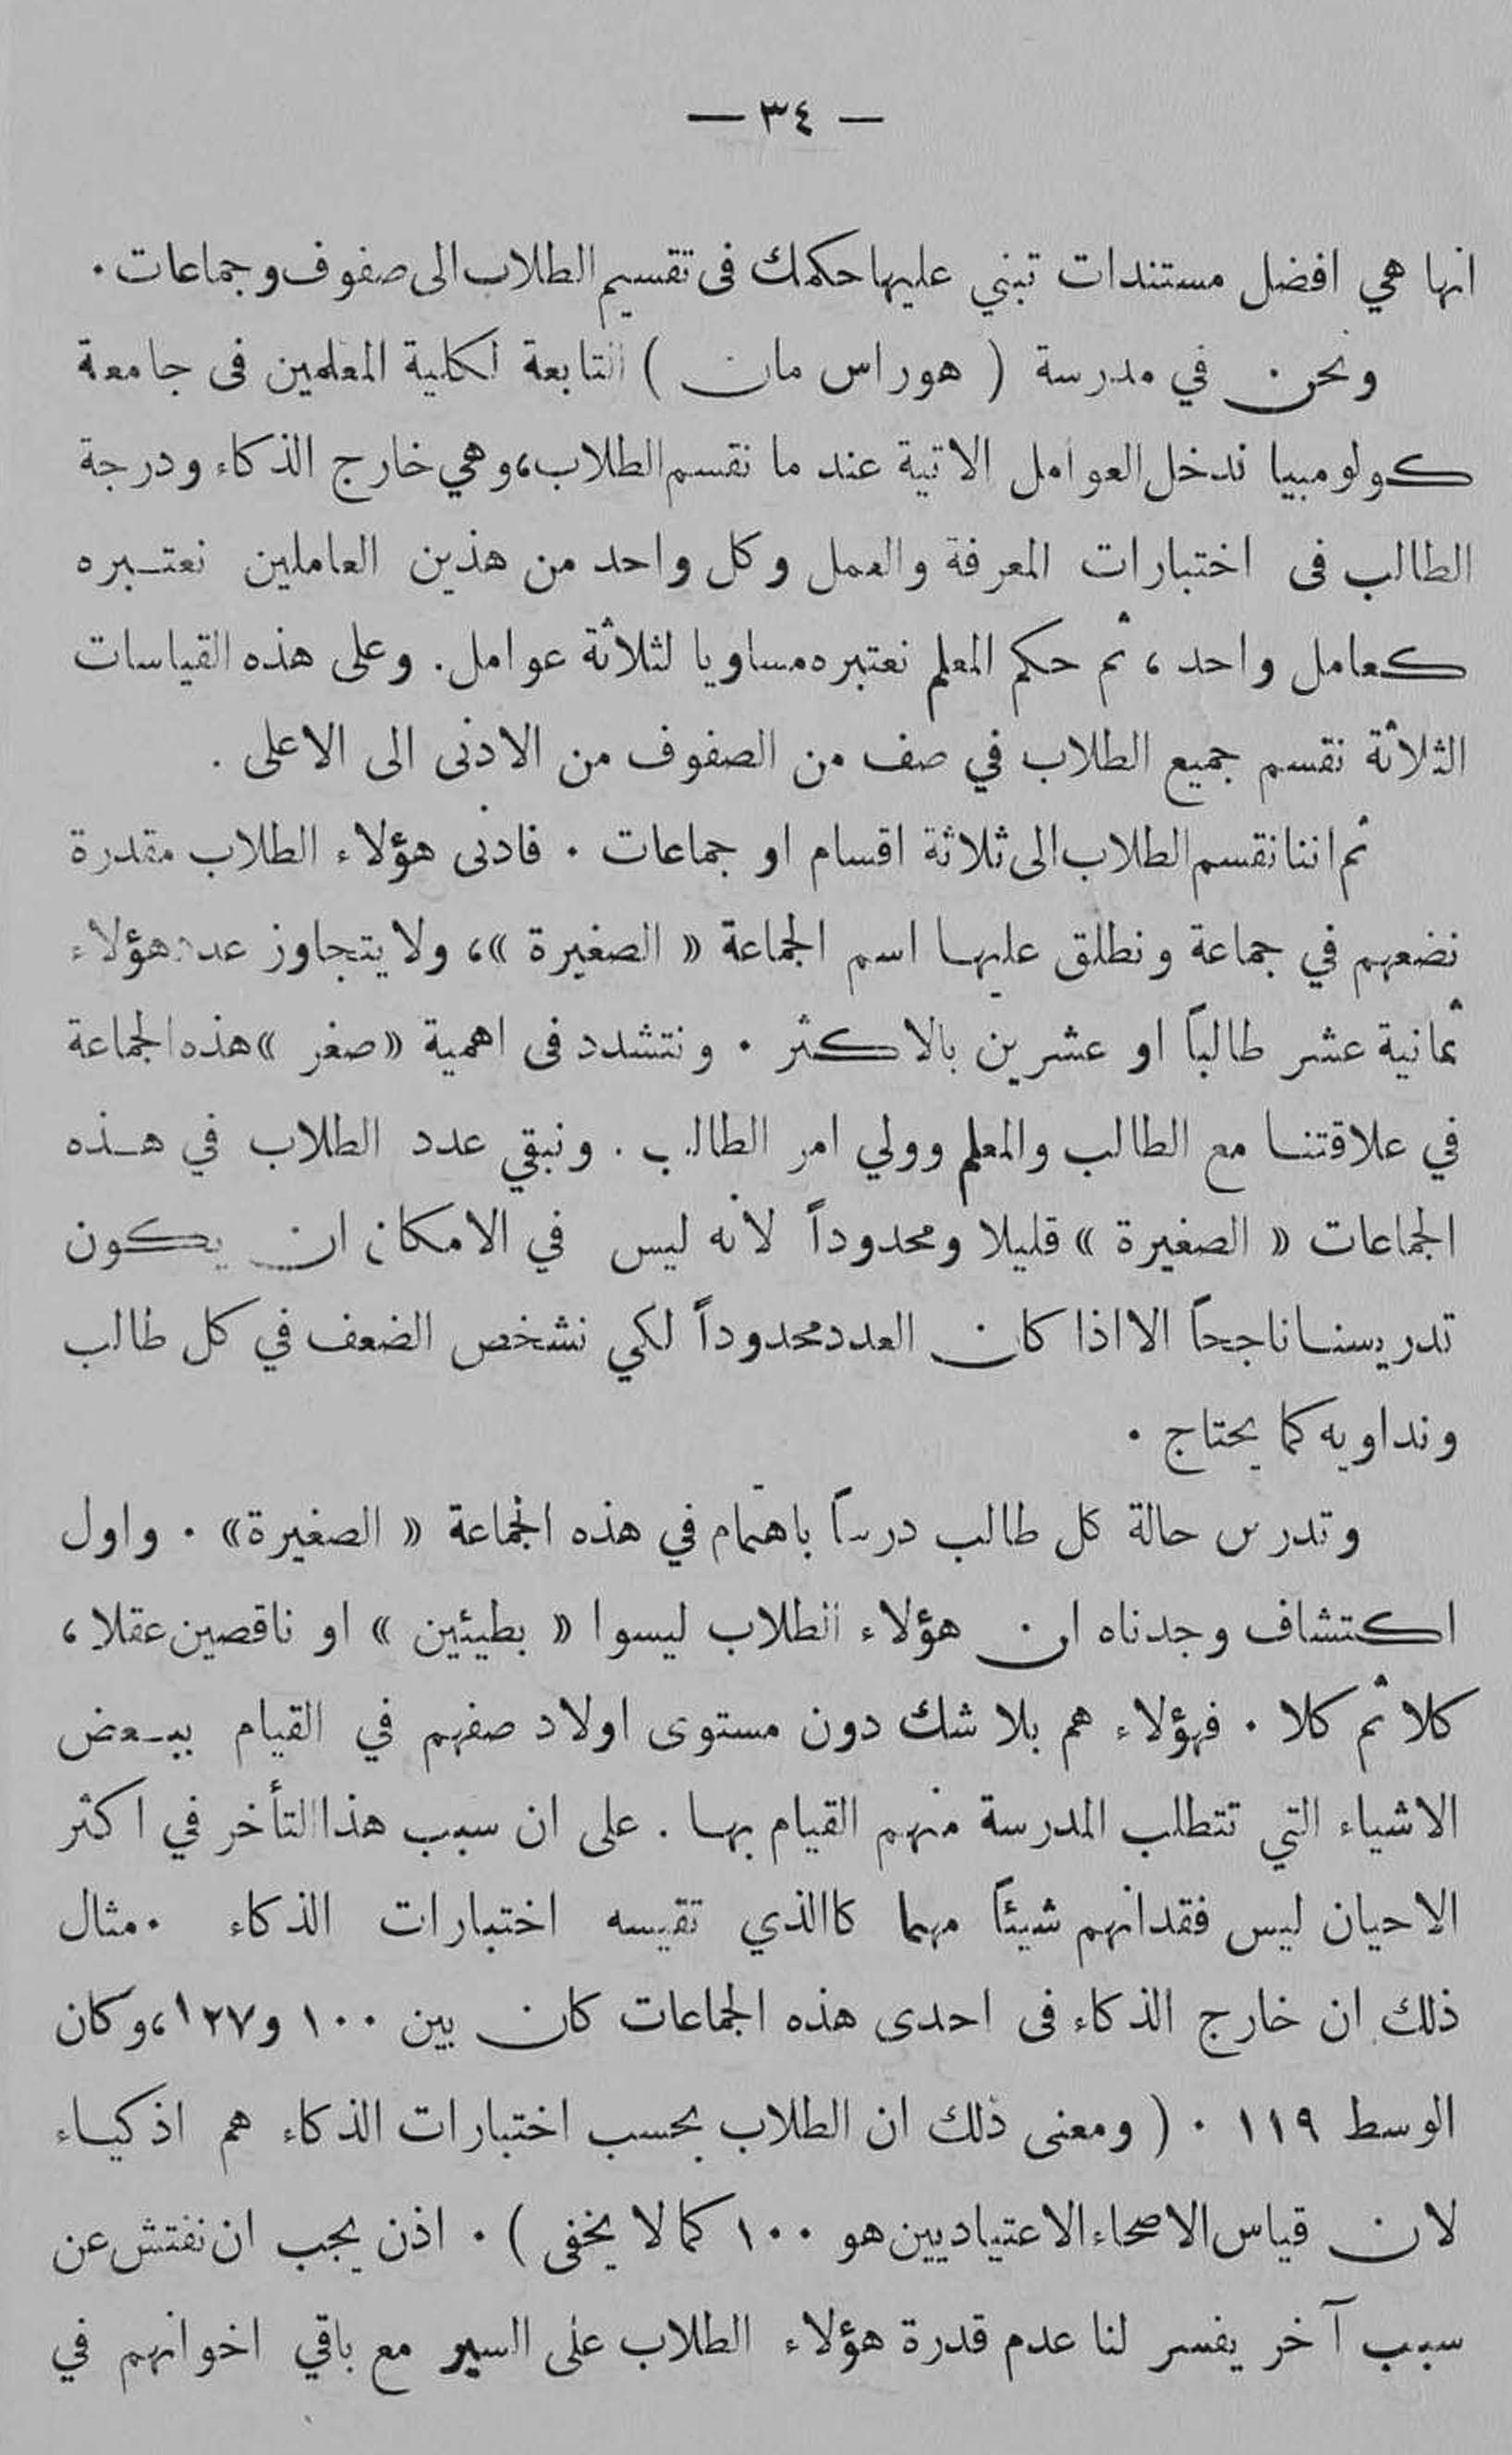 — ٣٤ —
انها هي افضل مستندات تبني عليها حكمك فى تقسيم الطلاب الى صفوف وجماعات .
ونحن في مدرسة ( هوراس مان ) التابعة لكلية المعلمين فى جامعة
كولومبيا ندخل العوامل الاتية عند ما نقسم الطلاب، وهي خارج الذكاء ودرجة
الطالب فى اختبارات المعرفة والعمل وكل واحد من هذين العاملين نعتبره
كعامل واحد ، ثم حكم المعلم نعتبره مساويا لثلاثة عوامل . وعلى هذه القياسات
الثلاثة نقسم جميع الطلاب في صف من الصفوف من الادنى الى الاعلى .
ثم اننا نقسم الطلاب الى ثلاثة اقسام او جماعات . فادنى هؤلاء الطلاب مقدرة
نضعهم في جماعة ونطلق عليها اسم الجماعة « الصغيرة »، ولا يتجاوز عدد هؤلاء
ثمانية عشر طالباً او عشرين بالاكثر . ونتشدد فى اهمية « صغر » هذه الجماعة
في علاقتنا مع الطالب والمعلم وولي امر الطالب . ونبقي عدد الطلاب في هذه
الجماعات « الصغيرة » قليلا ومحدوداً لأنه ليس في الامكان ان يكون
تدريسنا ناجحاً الا اذا كان العدد محدوداً لكي نشخص الضعف في كل طالب
ونداويه كما يحتاج .
وتدرس حالة كل طالب درساً باهتمام في هذه الجماعة « الصغيرة » . واول
اكتشاف وجدناه ان هؤلاء الطلاب ليسوا « بطيئين » او ناقصين عقلا ،
كلا ثم كلا . فهؤلاء هم بلا شك دون مستوى اولاد صفهم في القيام ببعض
الاشياء التي تتطلب المدرسة منهم القيام بها . على ان سبب هذا التأخر في اكثر
الاحيان ليس فقدانهم شيئاً مهما كالذي تقيسه اختبارات الذكاء . مثال
ذلك ان خارج الذكاء فى احدى هذه الجماعات كان بين ١٠٠ و١٢٧، وكان
الوسط ١١٩ . ( ومعنى ذلك ان الطلاب بحسب اختبارات الذكاء هم اذكياء
لان قياس الاصحاء الاعتياديين هو ١٠٠ كما لا يخفى ) . اذن يجب ان نفتش عن
سبب آخر يفسر لنا عدم قدرة هؤلاء الطلاب على السير مع باقي اخوانهم في